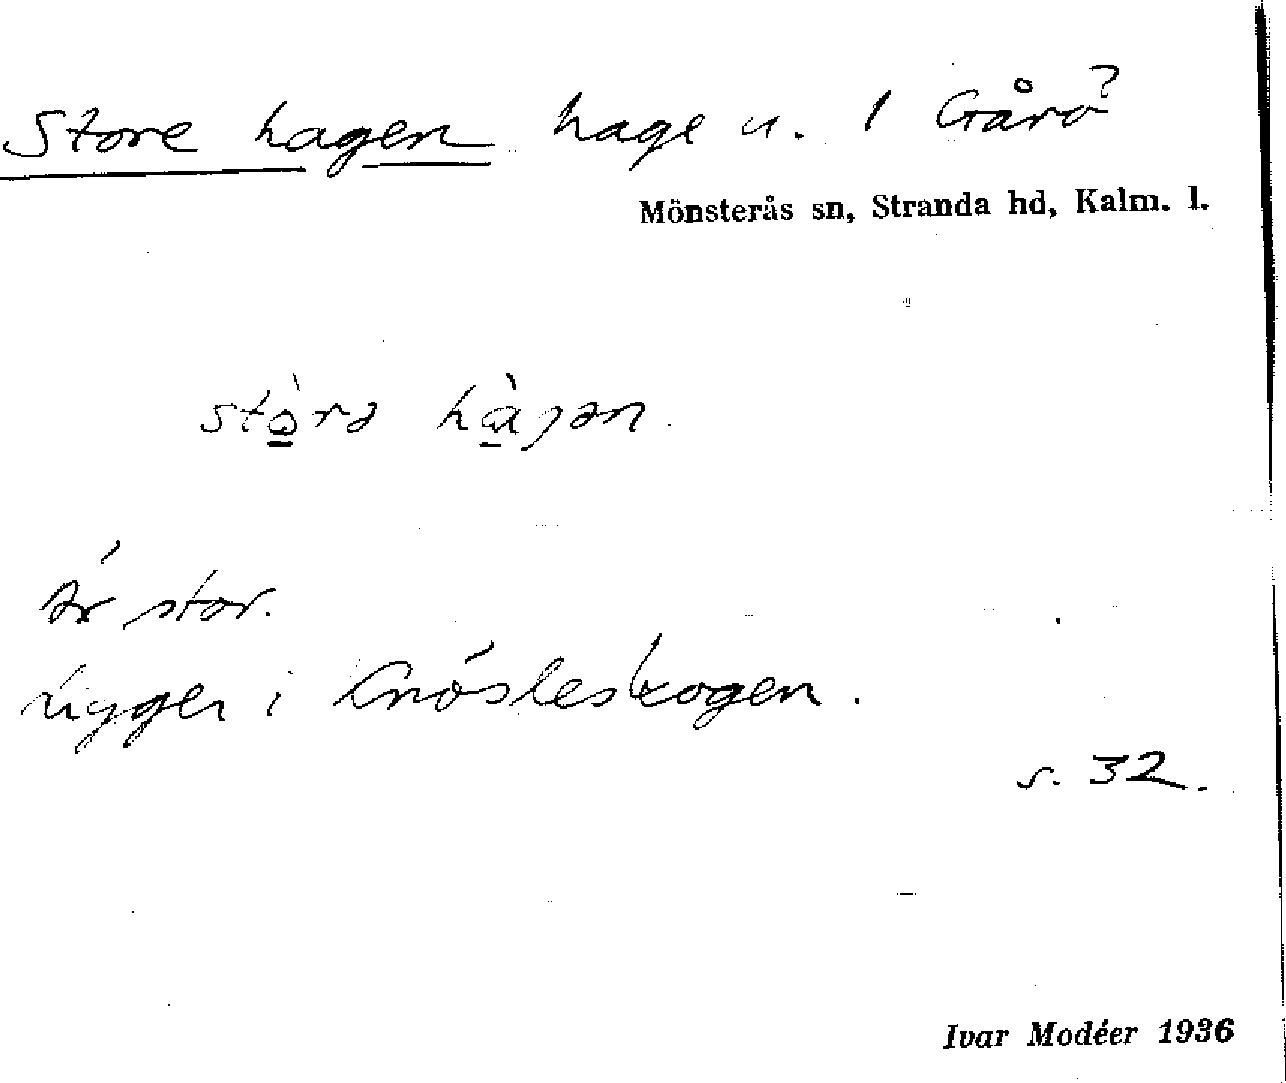 Store hagen hage u. 1 Gårö?
Mönsterås sn, Stranda hd, Kalm. l.
stò̱rə hà̱gən.
Är stor.
Ligger i Knösleskogen.
s. 32.
Ivar Modéer 1936